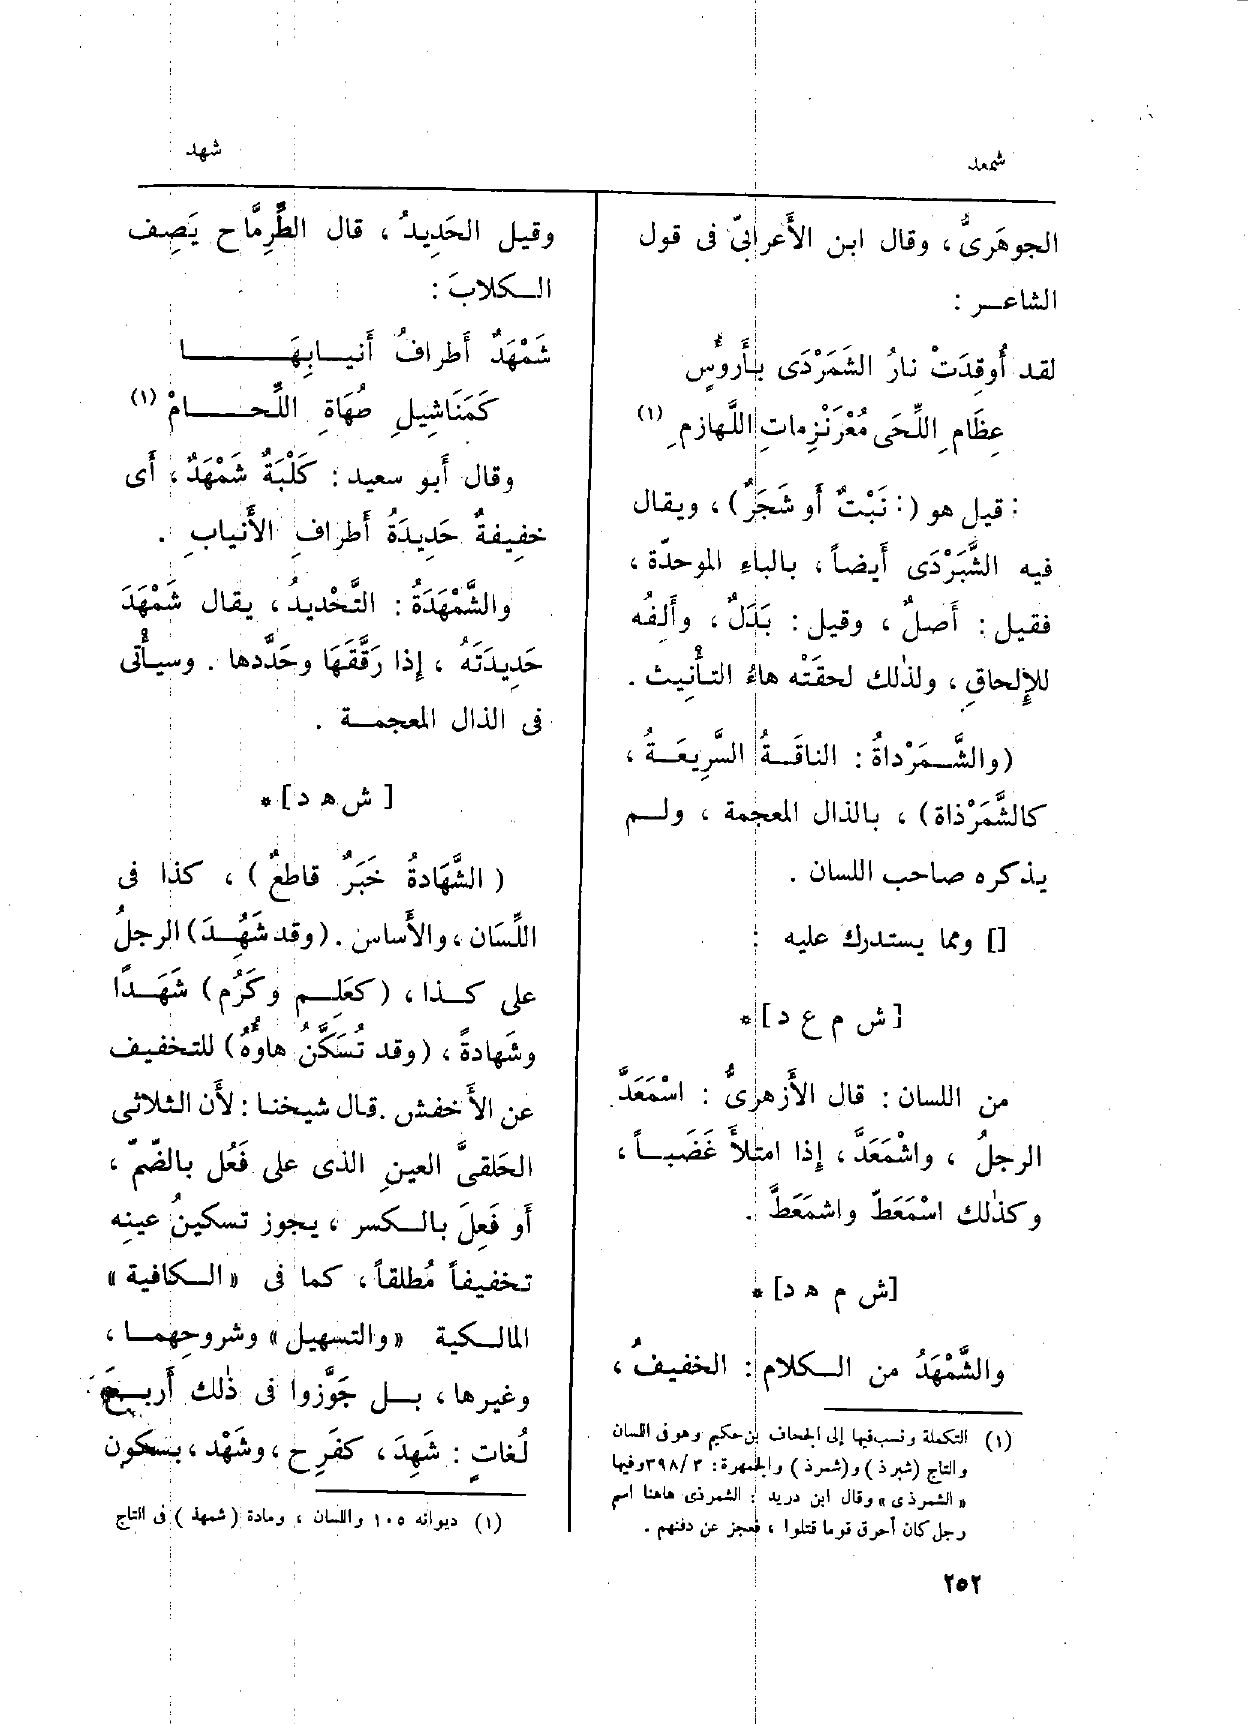 شمعد
شهد
الجوهَرىُّ ، وقال ابن الأَعرابىّ فى قول
الشاعـر :
لقد أُوقِدَتْ نارُ الشَمَرْدَى بأَروُسٍ
عِظَامِ اللِّحَى مُعْرَنْزِماتِ اللَّهازِمِ (١)
: قيل هو (: نَبْتٌ أَو شَجَرٌ) ، ويقال
فيه الشَّبَرْدَى أَيضاً ، بالباءِ الموحدّة ،
فقيل : أَصلٌ ، وقيل : بَدَلٌ ، وأَلفُه
للإِلحاقِ ، ولذٰلك لحقَتْه هاءُ التأْنيث .
(والشَّـمَرْداةُ : الناقَـةُ السَّرِيعَـةُ ،
كالشَّمَرْذاة) ، بالذال المعجمة ، ولـم
يذكره صاحب اللسان .
[] ومما يستدرك عليه :
[ ش م ع د ] *
من اللسان : قال الأَزهرىُّ : اسْمَعَدَّ
الرجلُ ، واشْمَعَدَّ ، إِذا امتلأَ غَضَبـاً ،
وكذٰلك اسْمَعَطَّ واشمَعَطَّ .
[ش م هـ د] *
والشَّمْهَدُ من الـكلام : الخفيفُ ،
(١) التكملة ونسب فيها إلى الجحاف بن حكيم وهو فى اللسان
والتاج (شبرذ) و (شمرذ) والجمهرة : ٣٩٨/٣ وفيها
« الشمرذى » وقال ابن دريد : الشمرذى هاهنا اسم
رجل كان أحرق قوما قتلوا ، فعجز عن دفنهم .
وقيل الحَدِيدُ ، قال الطِّرِمَّاح يَصِف
الـكلابَ :
شَمْهَدٌ أَطرافُ أَنيـابِهَـــــا
كَمَنَاشِيلِ صُهَاةِ اللَّحــامْ (١)
وقال أَبو سعيد : كَلْبَةٌ شَمْهَدٌ ، أَى
خفِيفةٌ حَدِيدَةُ أَطرافِ الأَنيابِ .
والشَّمْهَدَةُ : التَّحْديدُ ، يقال شَمْهَدَ
حَدِيدَتَهُ ، إِذا رَقَّقَهَا وحَدَّدها . وسيأْتى
فى الذال المعجمـة .
[ ش هـ د ] *
( الشَّهَادةُ خَبَرٌ قاطعٌ ) ، كذا فى
اللِّسَان ، والأَساس . (وقد شَهِـدَ) الرجلُ
على كـذا ، (كعَلِـم وكَرُم) شَهَـدًا
وشَهادةً ، (وقد تُسَكَّنُ هاؤُهُ) للتخفيف
عن الأَخفش . قال شيخنا : لأَن الثلاثى
الحَلقىَّ العينِ الذى على فَعُل بالضّمّ ،
أَو فَعِلَ بالـكسر ، يجوز تسكينُ عينِه
تخفيفاً مُطلقاً ، كما فى « الـكافية »
المالـكية « والتسهيل » وشروحِهمـا ،
وغيرها ، بـل جَوَّزوا فى ذٰلك أَربـعَ
لُغاتٍ : شَهِدَ ، كفَرِح ، وشَهْد ، بسكون
(١) ديوانه ١٠٥ واللسان ، ومادة ( شمهذ ) فى التاج
٢٥٢